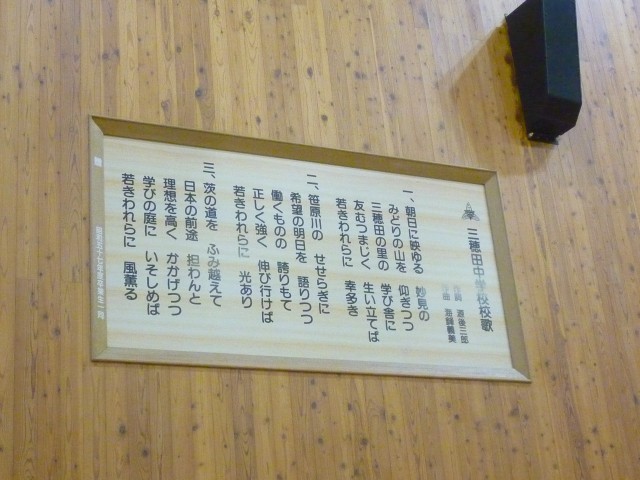 三穂田中学校校歌
作詞 道後三郎
作曲 海鋒義美
一、朝日に映ゆる 妙見の
みどりの山を 仰ぎつつ
三穂田の里の 学び舎に
友むつまじく 生い立てば
若きわれらに 幸多き
二、笹原川の せせらぎに
希望の明日を 語りつつ
働くものの 誇りもて
正しく強く 伸び行けば
若きわれらに 光あり
三、茨の道を ふみ越えて
日本の前途 担わんと
理想を高く かかげつつ
学びの庭に いそしめば
若きわれらに 風薫る